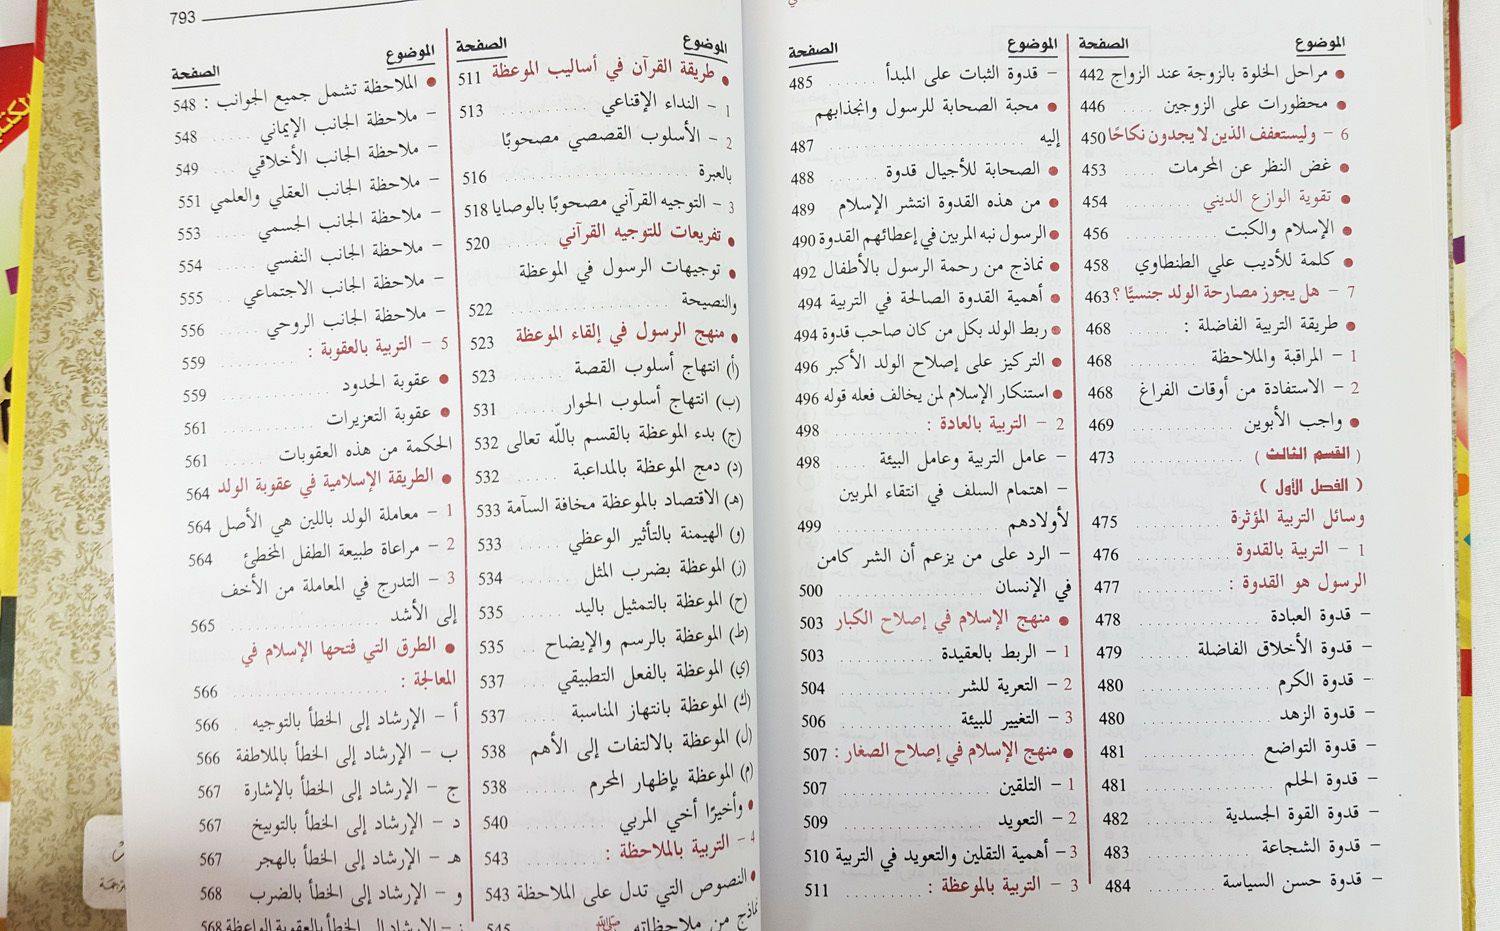 الموضوع الصفحة
● مراحل الخلوة بالزوجة عند الزواج 442
● محظورات على الزوجين 446
6 - وليستعفف الذين لا يجدون نكاحًا 450
● غض النظر عن المحرمات 453
● تقوية الوازع الديني 454
● الإسلام والكبت 456
● كلمة للأديب علي الطنطاوي 458
7 - هل يجوز مصارحة الولد جنسيًّا ؟ 463
● طريقة التربية الفاضلة : 468
1 - المراقبة والملاحظة 468
2 - الاستفادة من أوقات الفراغ 468
● واجب الأبوين 469
( القسم الثالث ) 473
( الفصل الأول )
وسائل التربية المؤثرة 475
1 - التربية بالقدوة 476
الرسول هو القدوة : 477
- قدوة العبادة 478
- قدوة الأخلاق الفاضلة 479
- قدوة الكرم 480
- قدوة الزهد 480
- قدوة التواضع 481
- قدوة الحلم 481
- قدوة القوة الجسدية 482
- قدوة الشجاعة 483
- قدوة حسن السياسة 484
الموضوع الصفحة
- قدوة الثبات على المبدأ 485
● محبة الصحابة للرسول وانجذابهم
إليه 487
● الصحابة للأجيال قدوة 488
● من هذه القدوة انتشر الإسلام 489
● الرسول نبه المربين في إعطائهم القدوة 490
● نماذج من رحمة الرسول بالأطفال 492
● أهمية القدوة الصالحة في التربية 494
● ربط الولد بكل من كان صاحب قدوة 494
● التركيز على إصلاح الولد الأكبر 496
● استنكار الإسلام لمن يخالف فعله قوله 496
2 - التربية بالعادة : 498
- عامل التربية وعامل البيئة 498
- اهتمام السلف في انتقاء المربين
لأولادهم 499
- الرد على من يزعم أن الشر كامن
في الإنسان 500
● منهج الإسلام في إصلاح الكبار 503
1 - الربط بالعقيدة 503
2 - التعرية للشر 504
3 - التغيير للبيئة 506
● منهج الإسلام في إصلاح الصغار : 507
1 - التلقين 507
2 - التعويد 509
3 - أهمية التقلين والتعويد في التربية 510
3 - التربية بالموعظة : 511
793
الموضوع الصفحة
● طريقة القرآن في أساليب الموعظة 511
1 - النداء الإقناعي 513
2 - الأسلوب القصصي مصحوبًا
بالعبرة 516
3 - التوجيه القرآني مصحوبًا بالوصايا 518
● تفريعات للتوجيه القرآني 520
● توجيهات الرسول في الموعظة
والنصيحة 522
● منهج الرسول في إلقاء الموعظة 523
(أ) انتهاج أسلوب القصة 523
(ب) انتهاج أسلوب الحوار 531
(ج) بدء الموعظة بالقسم بالله تعالى 532
(د) دمج الموعظة بالمداعبة 532
(هـ) الاقتصاد بالموعظة مخافة السآمة 533
(و) الهيمنة بالتأثير الوعظي 533
(ز) الموعظة بضرب المثل 534
(ح) الموعظة بالتمثيل باليد 535
(ط) الموعظة بالرسم والإيضاح 535
(ي) الموعظة بالفعل التطبيقي 537
(ك) الموعظة بانتهاز المناسبة 537
(ل) الموعظة بالالتفات إلى الأهم 538
(م) الموعظة بإظهار المحرم 538
● وأخيرًا أخي المربي 540
4 - التربية بالملاحظة : 543
● النصوص التي تدل على الملاحظة 543
نماذج من ملاحظاته ﷺ 545
الموضوع الصفحة
● الملاحظة تشمل جميع الجوانب : 548
- ملاحظة الجانب الإيماني 548
- ملاحظة الجانب الأخلاقي 549
- ملاحظة الجانب العقلي والعلمي 551
- ملاحظة الجانب الجسمي 553
- ملاحظة الجانب النفسي 554
- ملاحظة الجانب الاجتماعي 555
- ملاحظة الجانب الروحي 556
5 - التربية بالعقوبة : 559
● عقوبة الحدود 559
● عقوبة التعزيرات 561
الحكمة من هذه العقوبات 561
● الطريقة الإسلامية في عقوبة الولد 564
1 - معاملة الولد باللين هي الأصل 564
2 - مراعاة طبيعة الطفل المخطئ 564
3 - التدرج في المعاملة من الأخف
إلى الأشد 565
● الطرق التي فتحها الإسلام في
المعالجة : 566
أ - الإرشاد إلى الخطأ بالتوجيه 566
ب - الإرشاد إلى الخطأ بالملاطفة 566
ج - الإرشاد إلى الخطأ بالإشارة 567
د - الإرشاد إلى الخطأ بالتوبيخ 567
هـ - الإرشاد إلى الخطأ بالهجر 567
و - الإرشاد إلى الخطأ بالضرب 568
ز - الإرشاد إلى الخطأ بالعقوبة الواعظة 568